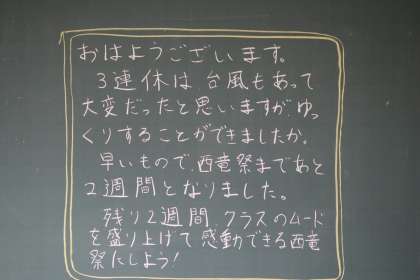 おはようございます。
3連休は、台風もあって
大変だったと思いますが、ゆっ
くりすることができましたか。
早いもので、西竜祭まであと
2週間となりました。
残り2週間、クラスのムード
を盛り上げて感動できる西竜
祭にしよう!